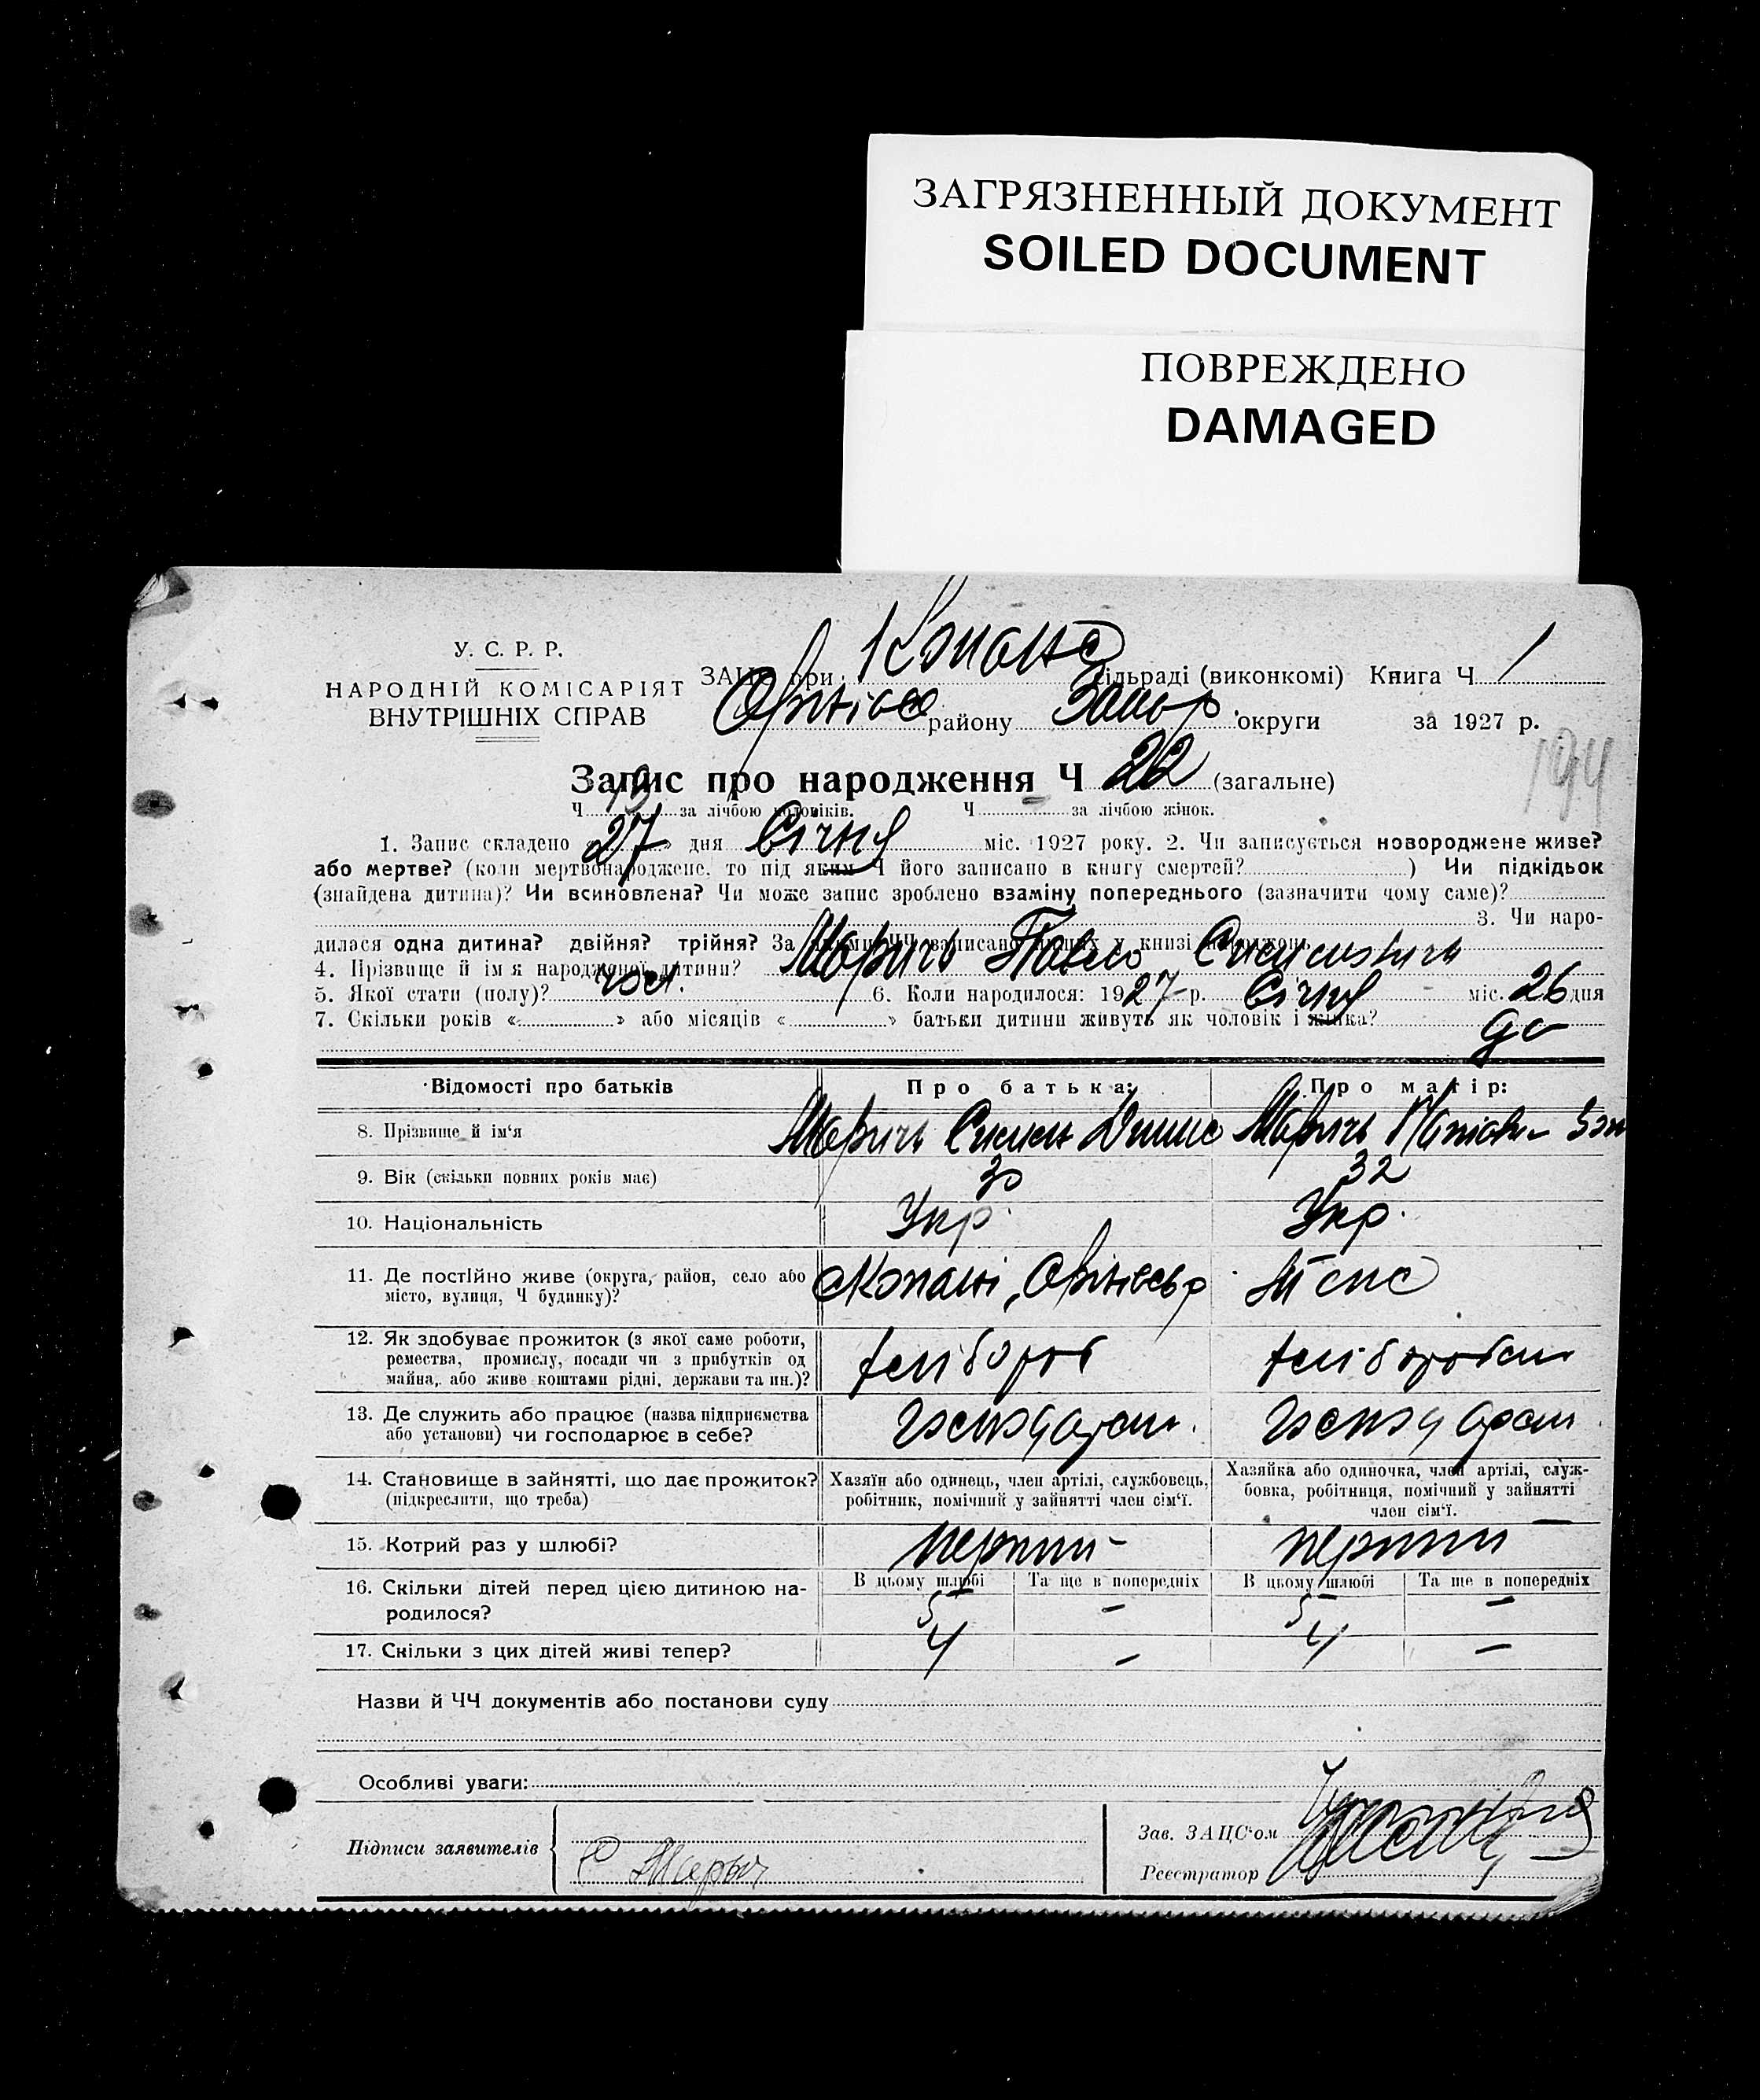 ЗАГРЯЗНЕННЫЙ ДОКУМЕНТ
SOILED DOCUMENT
ПОВРЕЖДЕНО
DAMAGED
У. С. Р. Р.
НАРОДНІЙ КОМІСАРІЯТ
ВНУТРІШНІХ СПРАВ
ЗАЦС при Копанс сільраді (виконкомі) Книга Ч 1
району Запор. округи за 1927 р.
194
Запис про народження Ч 22 (загальне)
Ч 13 за лічбою чоловіків. Ч за лічбою жінок.
1. Запис складено « 27 » дня Січня міс. 1927 року. 2. Чи записується новороджене живе?
або мертве? (коли мертвонароджене, то під яким Ч його записано в книгу смертей? ) Чи підкідьок
(знайдена дитина)? Чи всиновлена? Чи може запис зроблено взаміну попереднього (зазначити чому саме)?
3. Чи наро-
дилася одна дитина? двійня? трійня? За якими ЧЧ записано інших у книзі народжень
4. Прізвище й ім'я народженої дитини? Маричь Павло
5. Якої стати (полу)? чол. 6. Коли народилося: 1927 р. Січня міс. 26 дня
7. Скільки років « » або місяців « » батьки дитини живуть як чоловік і жінка?
Відомості про батьків Про батька: Про матір:
8. Прізвище й ім'я Маричь Маричь
9. Вік (скільки повних років має) 30 32
10. Національність Укр. Укр.
11. Де постійно живе (округа, район, село або Копані,
місто, вулиця, Ч будинку)?
12. Як здобуває прожиток (з якої саме роботи,
ремества, промислу, посади чи з прибутків од
майна, або живе коштами рідні, держави та ин.)?
13. Де служить або працює (назва підприємства
або установи) чи господарює в себе?
14. Становище в зайнятті, що дає прожиток? Хазяїн або одинець, член артілі, службовець, Хазяйка або одиночка, член артілі, служ-
(підкреслити, що треба) робітник, помічний у зайнятті член сім'ї. бовка, робітниця, помічний у зайнятті
член сім'ї.
15. Котрий раз у шлюбі? перший перший
16. Скільки дітей перед цією дитиною на- В цьому шлюбі Та ще в попередніх В цьому шлюбі Та ще в попередніх
родилося? 5 – 5 –
17. Скільки з цих дітей живі тепер? 4 – 4 –
Назви й ЧЧ документів або постанови суду
Особливі уваги:
Підписи заявителів
Зав. ЗАЦС'ом
Реєстратор